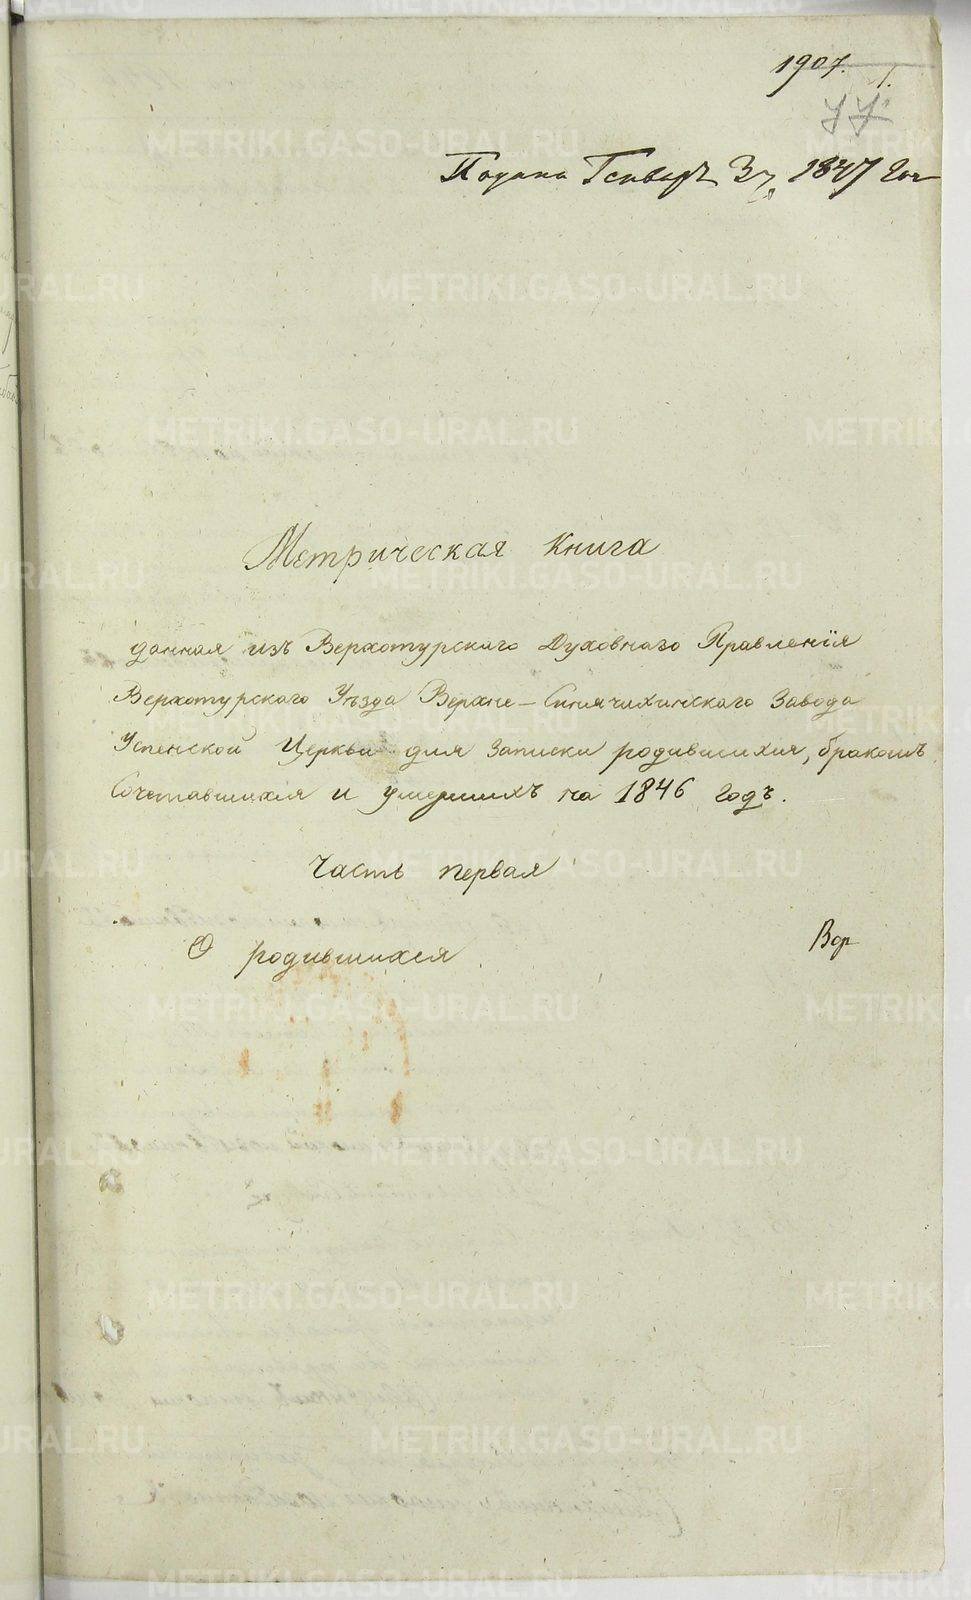 1907.
1.
Подана Генваря 3 1847 года
Метрическая Книга
данная изъ Верхотурскаго Духовнаго Правленія
Верхотурскаго Уѣзда Верхне-Синячихинскаго Завода
Успенской Церкви для записки родившихся, бракомъ
Сочетавшихся и умершихъ на 1846 годъ.
Часть первая
О родившихся
Вер
METRIKI.GASO-URAL.RU